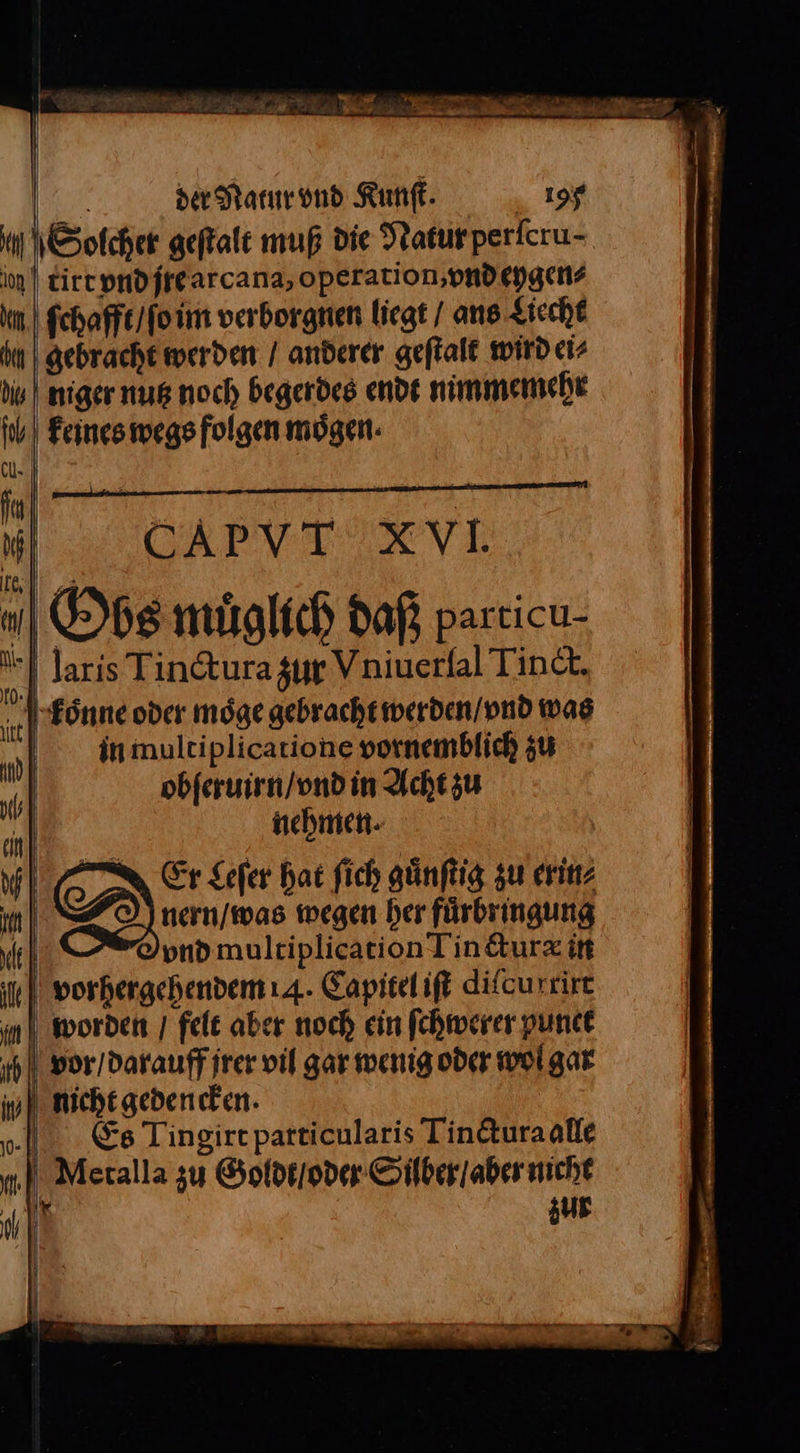 der Natur vnd Kunſt. 195
Solcher geſtalt muß die Natur perſcru-
tirt vnd jre arcana, operation, vnd eygen⸗
ſchafft / ſo im verborgnen liegt / ans Liecht
gebracht werden / anderer geſtalt wird ei⸗
niger nutz noch begerdes endt nimmemehr
keines wegs folgen moͤgen.
CAPVT XVI.
Obs muͤglich daß particu-
laris Tinctura zur Vniuerſal Tinct.
koͤnne oder moͤge gebracht werden / vnd was
in multiplicatione vornemblich zu
obſeruirn / vnd in Acht zu
nehmen.
DEr Leſer hat ſich guͤnſtig zu erin⸗
nern / was wegen her fuͤrbringung
vnd multiplication Tincturæ in
vorhergehendem 14. Capitel iſt diſcurrirt
worden / felt aber noch ein ſchwerer punct
vor / darauff jrer vil gar wenig oder wol gar
nicht gedencken.
Es Tingirt particularis Tinctura alle
Metalla zu Goldt / oder Silber / aber nicht
zur